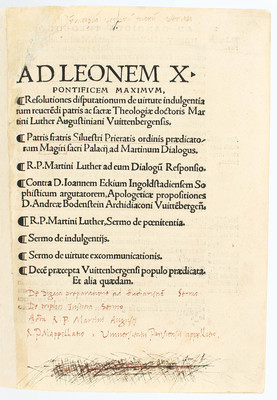 AD LEONEM X.
PONTIFICEM MAXIMVM,
¶Resolutiones disputationum de uirtute indulgentia
rum reuerēdi patris ac sacræ Theologiæ doctoris Mar
tini Luther Augustiniani Vuittenbergensis.
¶Patris fratris Siluestri Prieratis ordinis prædicato
rum Magiſtri sacri Palacij, ad Martinum Dialogus.
¶R.P. Martini Luther ad eum Dialogū Responsio.
¶Contra D. Ioannem Eckium Ingolstadiensem So
phisticum argutatorem, Apologeticæ propositiones
D. Andreæ Bodenstein Archidiaconi Vuittēbergeñ.
¶R.P. Martini Luther, Sermo de pœnitentia.
¶Sermo de indulgentijs.
¶Sermo de uirtute excommunicationis.
¶Decē præcepta Vuittenbergensi populo prædicata.
Et alia quædam.
De digna præparatione ad Eucharistiā Sermo
De triplici Iusticia Sermo
Acta R P Martini August
R P M appellatio Vniversitatis Parisiensis appellatio